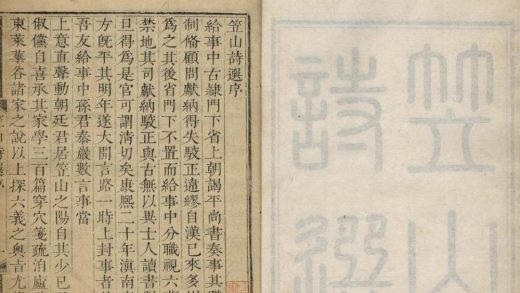 笠山
詩選
笠山詩選序
給事中古隸門下省上朝謁平尚書奏事其
制脩顧問獻納得失駁正違繆自漢已來多
爲之其後省門下不置而給事中分職視六
禁地其司獻納駁正與古無以異士人讀書
旦得爲是官可謂清切矣康熙二十年滇南
方旣平其明年遂大開言路一時上封事者
吾友給事中孫君泰巖數言事當
上意直聲動朝廷君居笠山之陽自其少已
俶儻自喜承其家學三百篇穿穴箋疏洎盧
東萊華谷諸家之說以上探六義之奧言尤